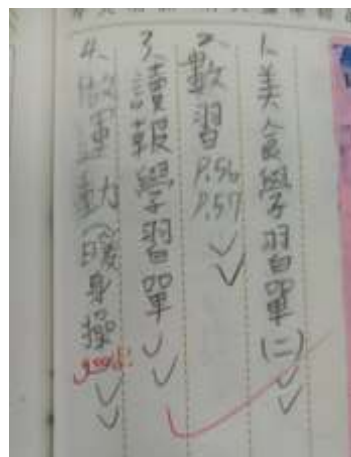 1、美食學習單(二)
2、數習P.56
P.57
3、讀報學習單
4、做運動(暖身操
good